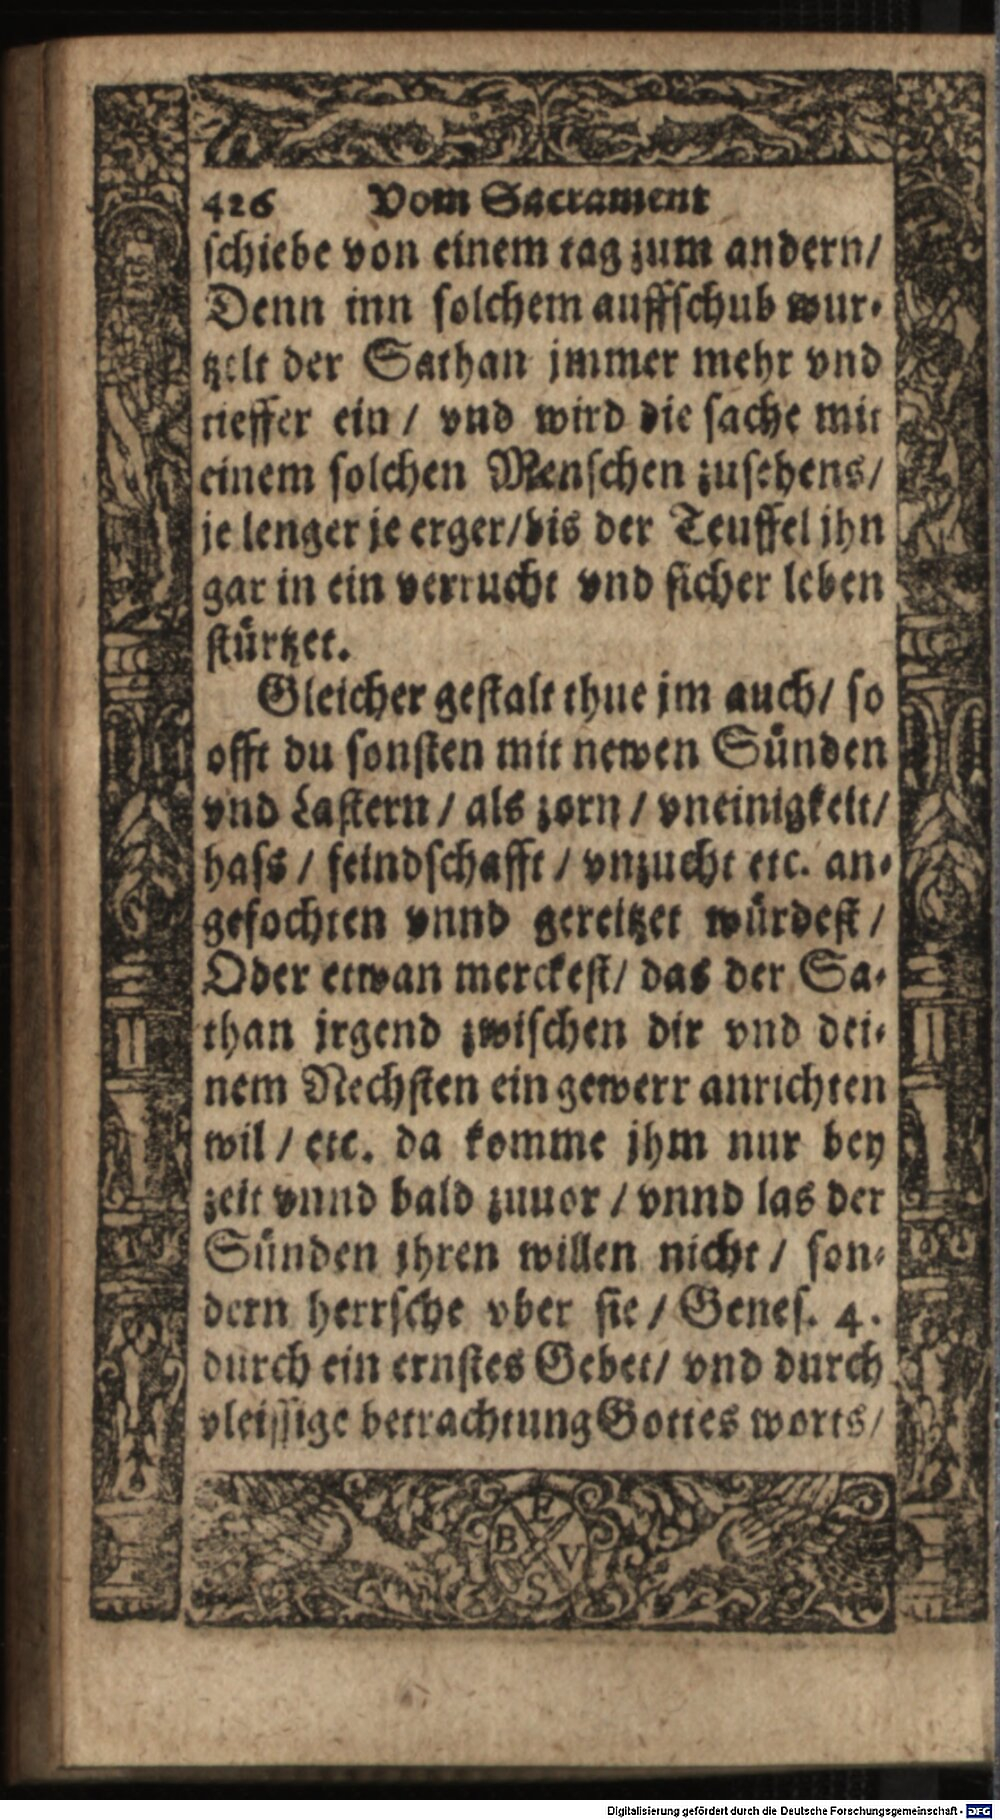 426 Vom Sacrament
schiebe von einem tag zum andern/
Denn inn solchem auffschub wur-
tzelt der Sathan jmmer mehr vnd
tieffer ein / vnd wird die sache mit
einem solchen Menschen zusehens/
je lenger je erger/bis der Teuffel jhn
gar in ein verrucht vnd sicher leben
stürtzet.
Gleicher gestalt thue jm auch/ so
offt du sonsten mit newen Sünden
vnd Lastern / als zorn / vneinigkeit/
hass / feindschafft / vnzucht etc. an-
gefochten vnnd gereitzet würdest /
Oder etwan merckest/ das der Sa-
than jrgend zwischen dir vnd dei-
nem Nechsten ein gewerr anrichten
wil / etc. da komme jhm nur bey
zeit vnnd bald zuuor / vnnd las der
Sünden jhren willen nicht / son-
dern herrsche vber sie / Genes. 4.
durch ein ernstes Gebet/ vnd durch
vleissige betrachtung Gottes worts/
E
B V
S
Digitalisierung gefördert durch die Deutsche Forschungsgemeinschaft - DFG